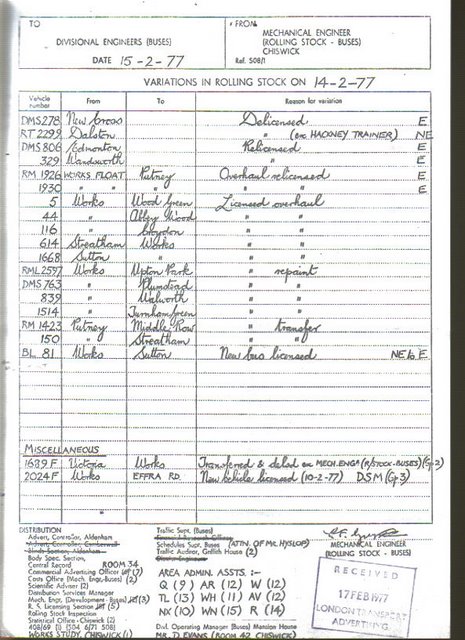 TO
DIVISIONAL ENGINEERS (BUSES)
DATE 15-2-77
FROM
MECHANICAL ENGINEER
(ROLLING STOCK - BUSES)
CHISWICK
Ref. 508/1
VARIATIONS IN ROLLING STOCK ON 14-2-77
Vehicle number From To Reason for variation
DMS 278 New Cross Delicensed E
RT 2299 Dalston " (ex HACKNEY TRAINER) NE
DMS 806 Edmonton Relicensed E
329 Wandsworth " E
RM 1926 WORKS FLOAT Putney Overhaul relicensed E
1930 " " " " " E
5 Works Wood Green Licensed overhaul
44 " Abbey Wood " "
116 " Croydon " "
614 Streatham Works " "
1668 Sutton " " "
RML 2597 Works Upton Park " repaint
DMS 763 " Plumstead " "
839 " Walworth " "
1514 " Turnham Green " "
RM 1423 Putney Middle Row " transfer
150 " Streatham " "
BL 81 Works Sutton New bus licensed NE to E
MISCELLANEOUS
1689 F Victoria Works Transferred & delsd ex MECH. ENGR (R/STOCK-BUSES) (Gp 2)
2024 F Works EFFRA RD. New Vehicle licensed (10-2-77) DSM (Gp 3)
"
DISTRIBUTION
Advert. Controller, Aldenham
Body Spec. Section,
Central Record ROOM 34
Commercial Advertising Officer (7)
Costs Office (Mech. Engr.-Buses) (2)
Scientific Adviser (2)
Distribution Services Manager
Mech. Engr. (Development - Buses) (3)
R. S. Licensing Section (5)
Rolling Stock Inspection
Statistical Office - Chiswick (2)
WORKS STUDY, CHISWICK (1)
Traffic Supt. (Buses)
Schedules Supt. Buses (ATTN. OF MR. HYSLOP)
Traffic Auditor, Griffith House (2)
AREA ADMIN. ASSTS. :-
Q (9) AR (12) W (12)
TL (13) WH (11) AV (12)
NX (10) WN (15) R (14)
Divl. Operating Manager (Buses) Mansion House
MR. D. EVANS (ROOM 42 CHISWICK)
MECHANICAL ENGINEER
(ROLLING STOCK - BUSES)
RECEIVED
17 FEB 1977
LONDON TRANSPORT
ADVERTISING